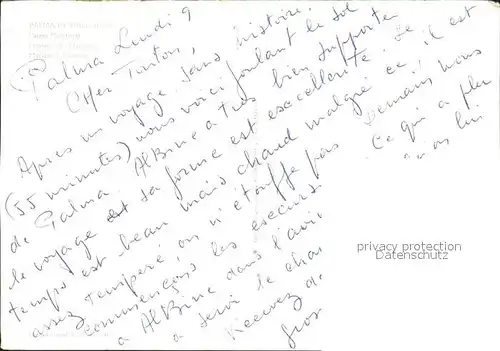 Palma Lundi 9
Cher Tonton,
Après un voyage sans histoire.
(55 minutes) nous voici foulant le sol
de Palma. Albine a très bien supporté
le voyage et sa forme est excellente. Le
temps est beau mais chaud malgré ce, il est
assez tempéré, on n'étouffe pas. Demain nous
commençons les excurs
Ce qui a plu
à Albine dans l'avi
qu'on lui
a servi le cha
Recevez de
gros
privacy protection
DarkCorner.de